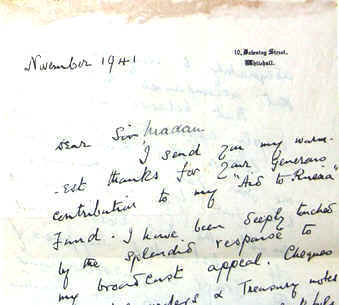 November 1941
10, Downing Street,
Whitehall.
Dear Sir/Madam
I send you my warm-
-est thanks for your generous
contribution to my "Aid to Russia"
Fund. I have been deeply touched
by the splendid response to
my broadcast appeal. Cheques
orders & Treasury notes